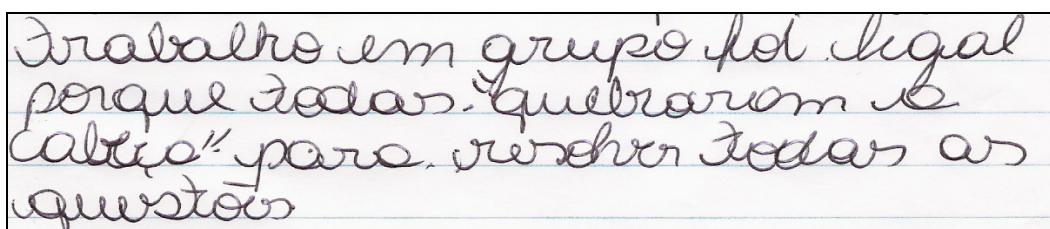 Trabalho em grupo foi legal
porque todas "quebraram a
cabeça" para resolver todas as
questões